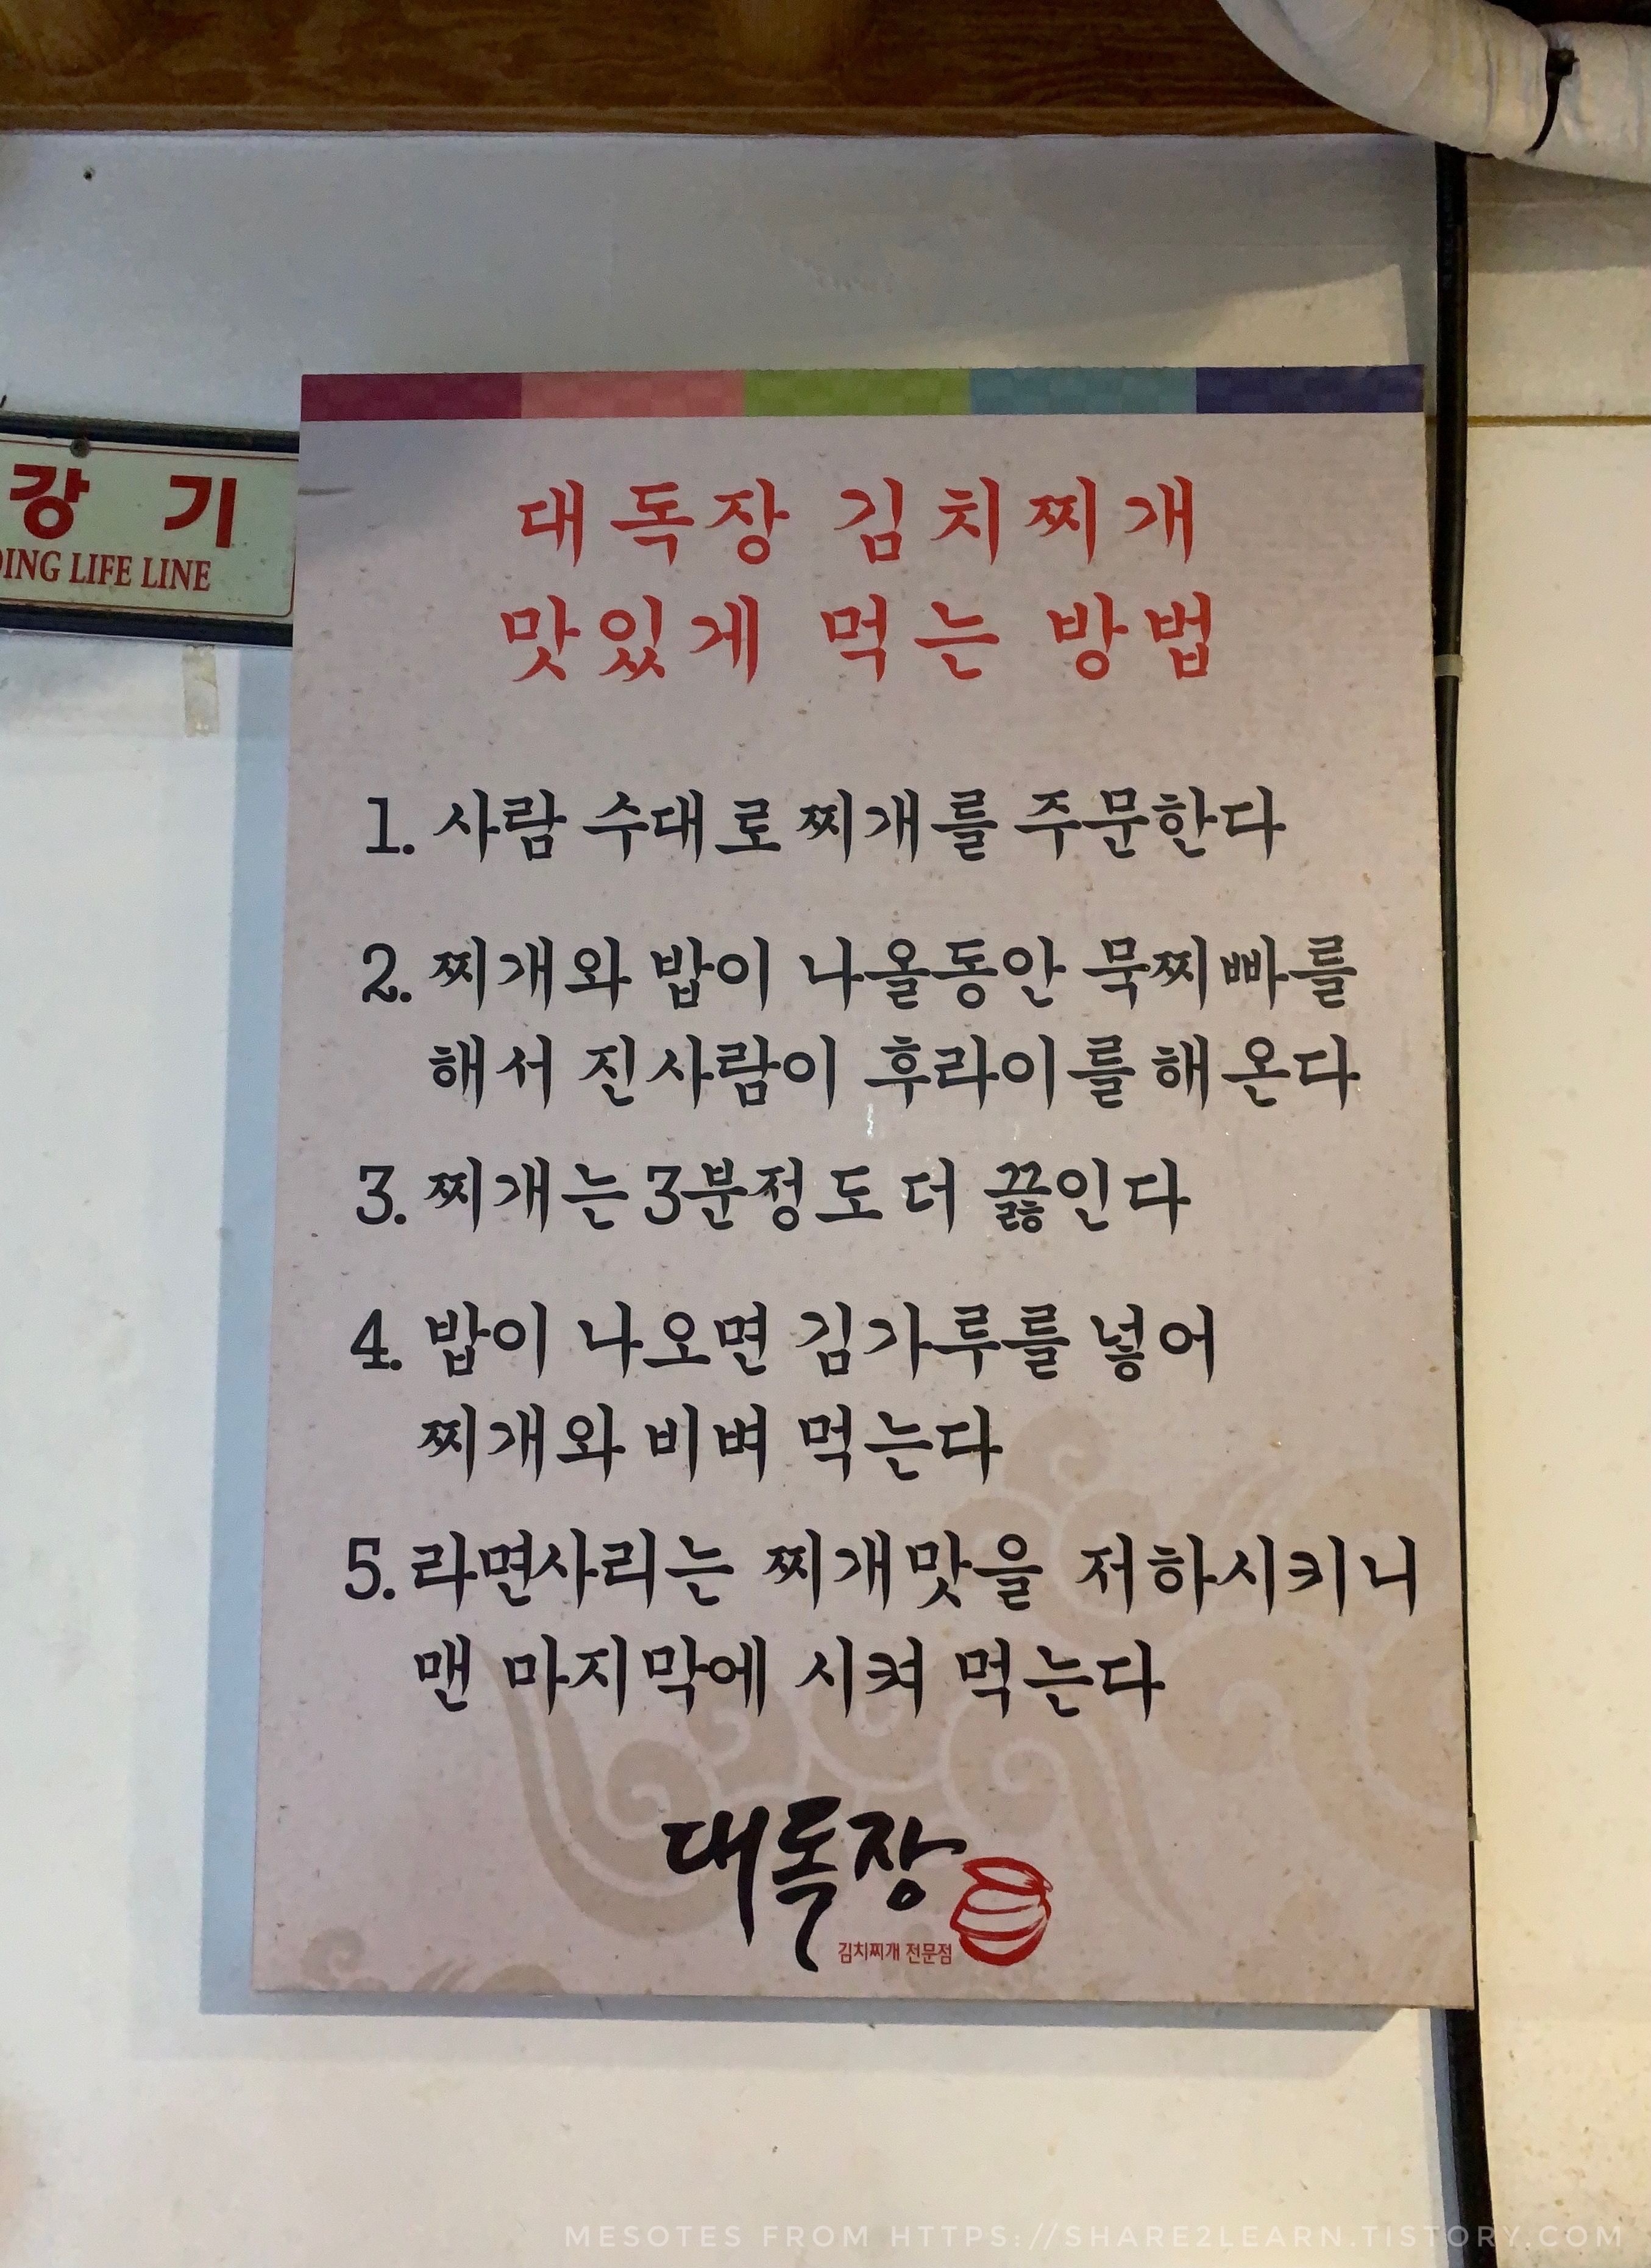 강 기
DING LIFE LINE
대독장 김치찌개
맛있게 먹는 방법
1. 사람 수대로 찌개를 주문한다
2. 찌개와 밥이 나올동안 묵찌빠를
해서 진사람이 후라이를 해온다
3. 찌개는 3분정도 더 끓인다
4. 밥이 나오면 김가루를 넣어
찌개와 비벼 먹는다
5. 라면사리는 찌개맛을 저하시키니
맨 마지막에 시켜 먹는다
대독장
김치찌개 전문점
MESOTES FROM HTTPS://SHARE2LEARN.TISTORY.COM